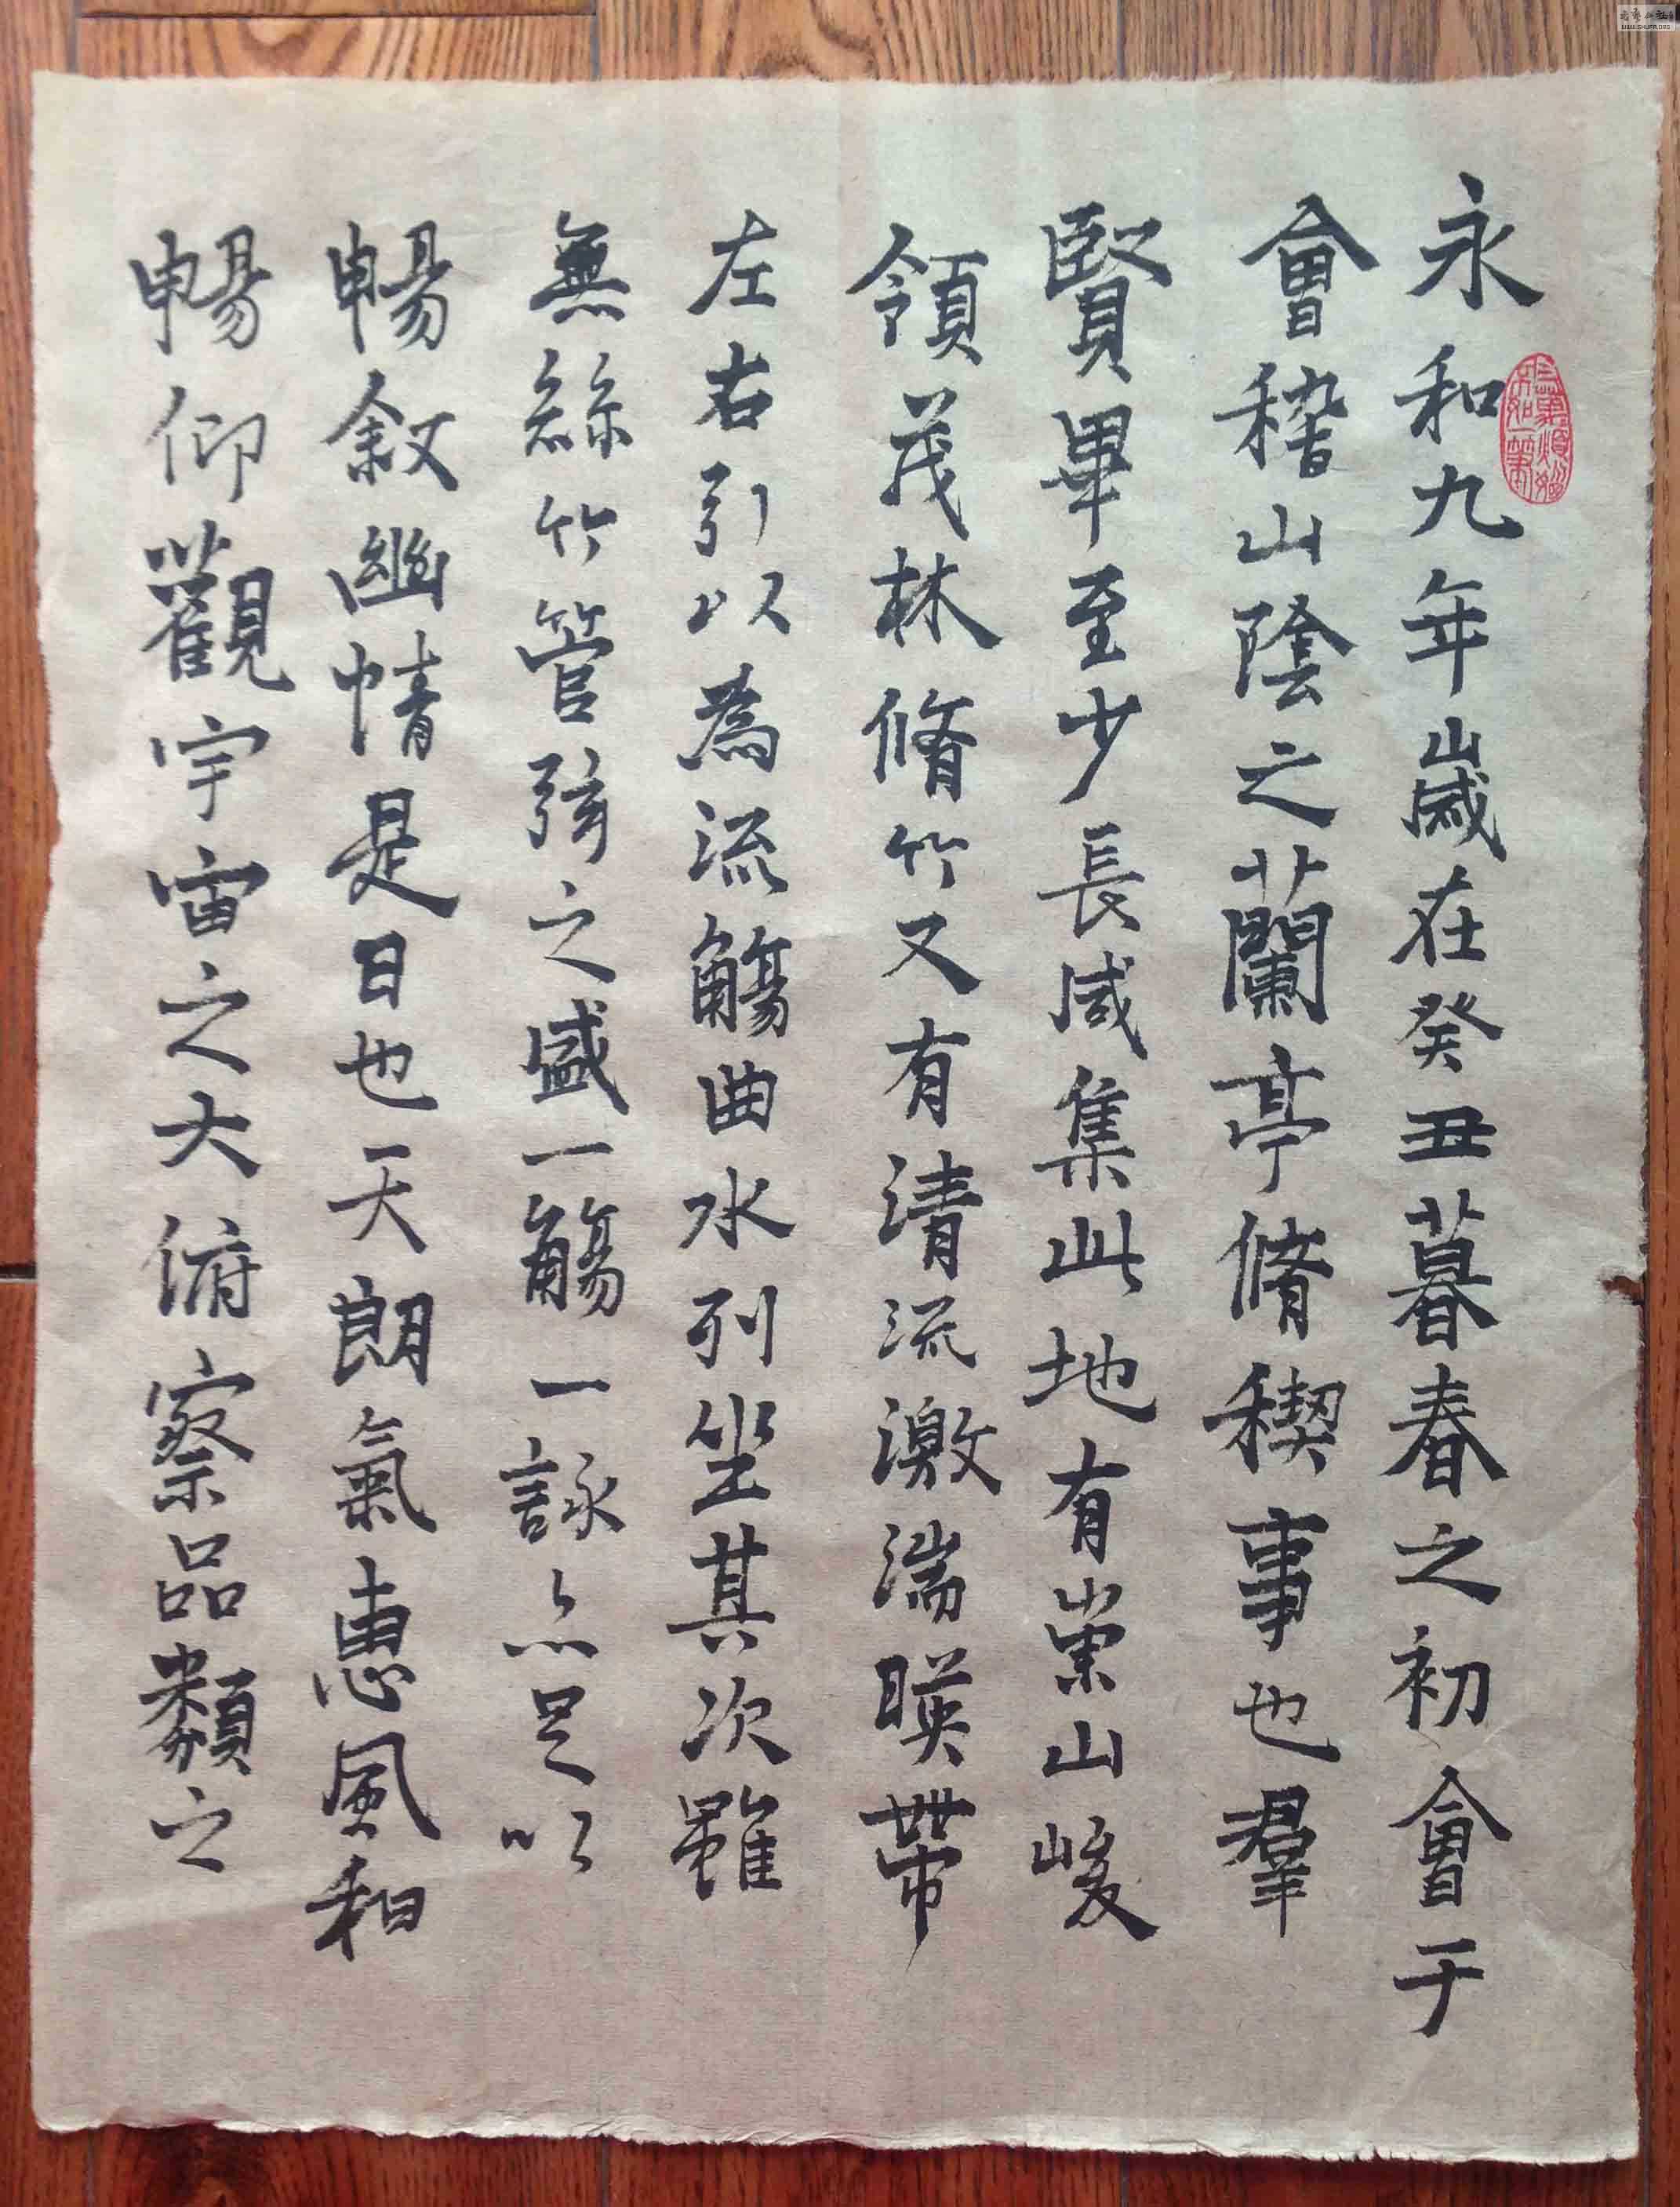 永和九年歲在癸丑暮春之初會于
會稽山陰之蘭亭脩稧事也羣
賢畢至少長咸集此地有崇山峻
領茂林脩竹又有清流激湍暎帶
左右引以為流觴曲水列坐其次雖
無絲竹管弦之盛一觴一詠亦足以
暢叙幽情是日也天朗氣惠風和
暢仰觀宇宙之大俯察品類之